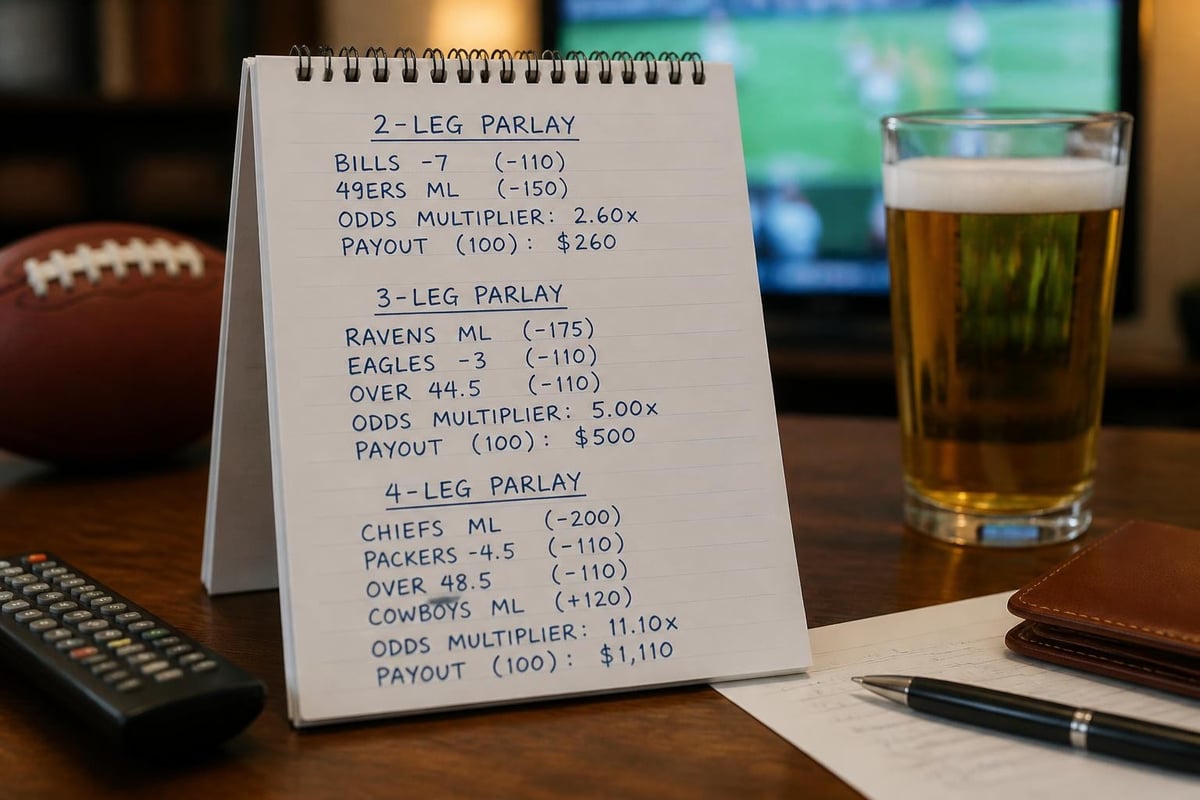 2-LEG PARLAY
BILLS -7 (-110)
49ERS ML (-150)
ODDS MULTIPLIER: 2.60x
PAYOUT (100): $260
3-LEG PARLAY
RAVENS ML (-175)
EAGLES -3 (-110)
OVER 44.5 (-110)
ODDS MULTIPLIER: 5.00x
PAYOUT (100): $500
4-LEG PARLAY
CHIEFS ML (-200)
PACKERS -4.5 (-110)
OVER 48.5 (-110)
COWBOYS ML (+120)
ODDS MULTIPLIER: 11.10x
PAYOUT (100): $1,110